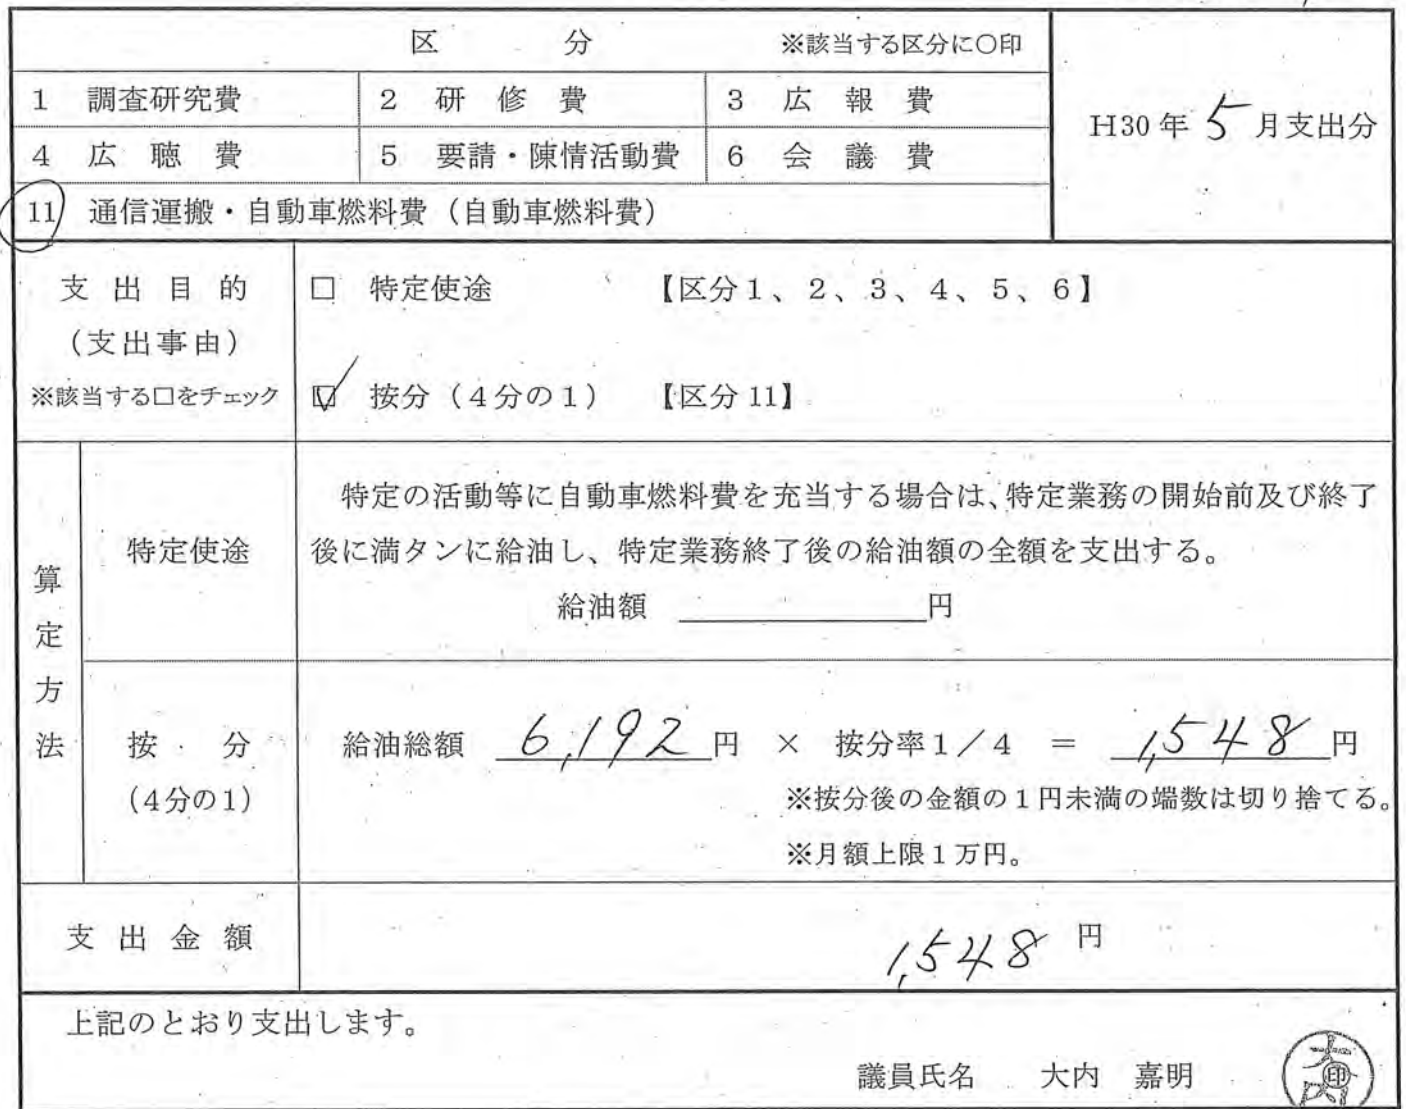 区 分 ※該当する区分に○印
1 調査研究費 2 研修費 3 広報費
H30年5月支出分
4 広聴費 5 要請・陳情活動費 6 会議費
11 通信運搬・自動車燃料費(自動車燃料費)
支出目的 □ 特定使途 【区分1、2、3、4、5、6】
(支出事由)
※該当する□をチェック ☑ 按分(4分の1) 【区分11】
算定方法
特定使途
特定の活動等に自動車燃料費を充当する場合は、特定業務の開始前及び終了
後に満タンに給油し、特定業務終了後の給油額の全額を支出する。
給油額 円
按分
(4分の1)
給油総額 6,192 円 × 按分率1/4 = 1,548 円
※按分後の金額の1円未満の端数は切り捨てる。
※月額上限1万円。
支出金額 1,548 円
上記のとおり支出します。
議員氏名 大内 嘉明 印
大内